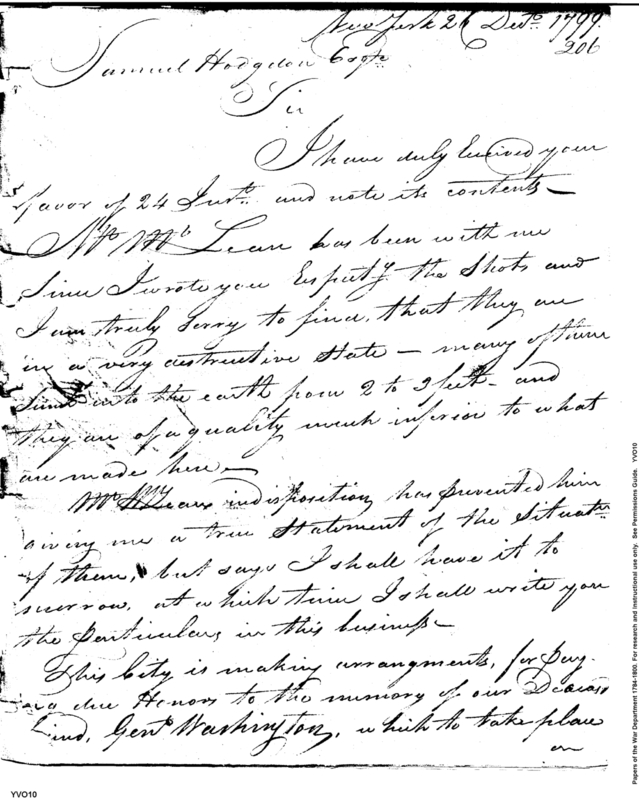 New York 26 Decr. 1799.
206
Samuel Hodgdon Esqr.
Sir
I have duly Received your
favor of 24 Inst. and note its contents –
Mr. Mc Lean has been with me
Since I wrote you Respectg the Shots and
I am truly Sorry to find, that they are
in a very destructive State – many of them
Sunk into the earth from 2 to 3 feet – and
they are of a quality much inferior to what
are made here –
Mr. Leans indisposition has prevented him
giving me a true Statement of the Situatn
of them, but says I shall have it to
morrow, at which time I shall write you
the particulars in this business –
This City is making arrangments, for pay-
ing due Honors to the memory of our Deceas
Genl. Washington, which to take place
on
YVO10
Papers of the War Department 1784-1800. For research and instructional use only. See Permissions Guide. YVO10